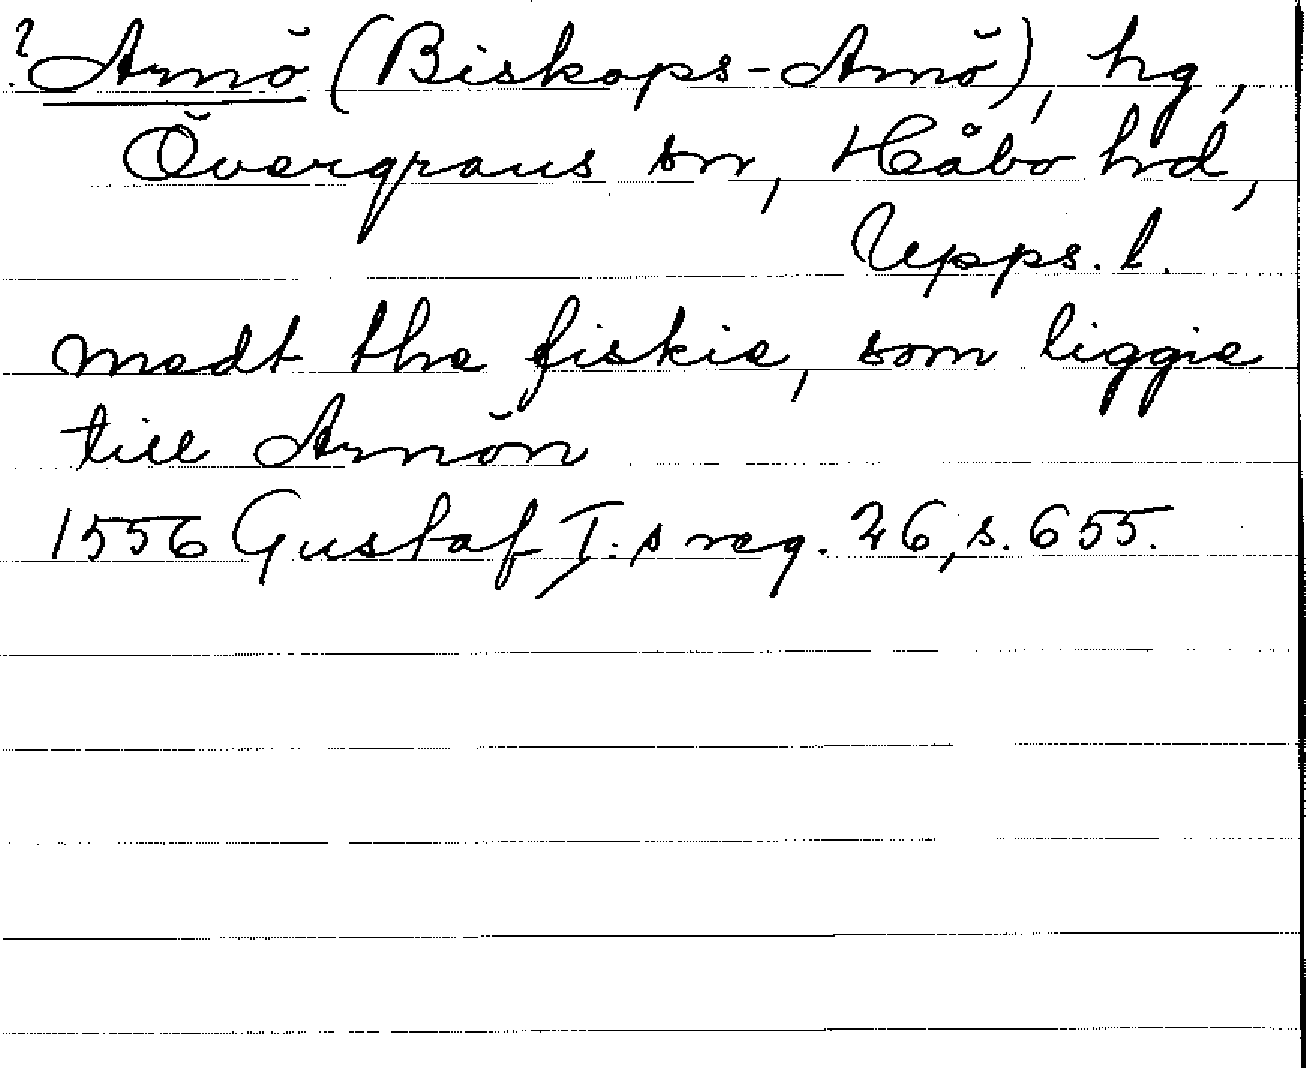 ? Arnö (Biskops-Arnö), hg,
Övergrans sn, Håbo hd,
Upps. l.
medt the fiskie, som liggie
till Arnön
1556 Gustaf I:s reg. 26, s. 655.